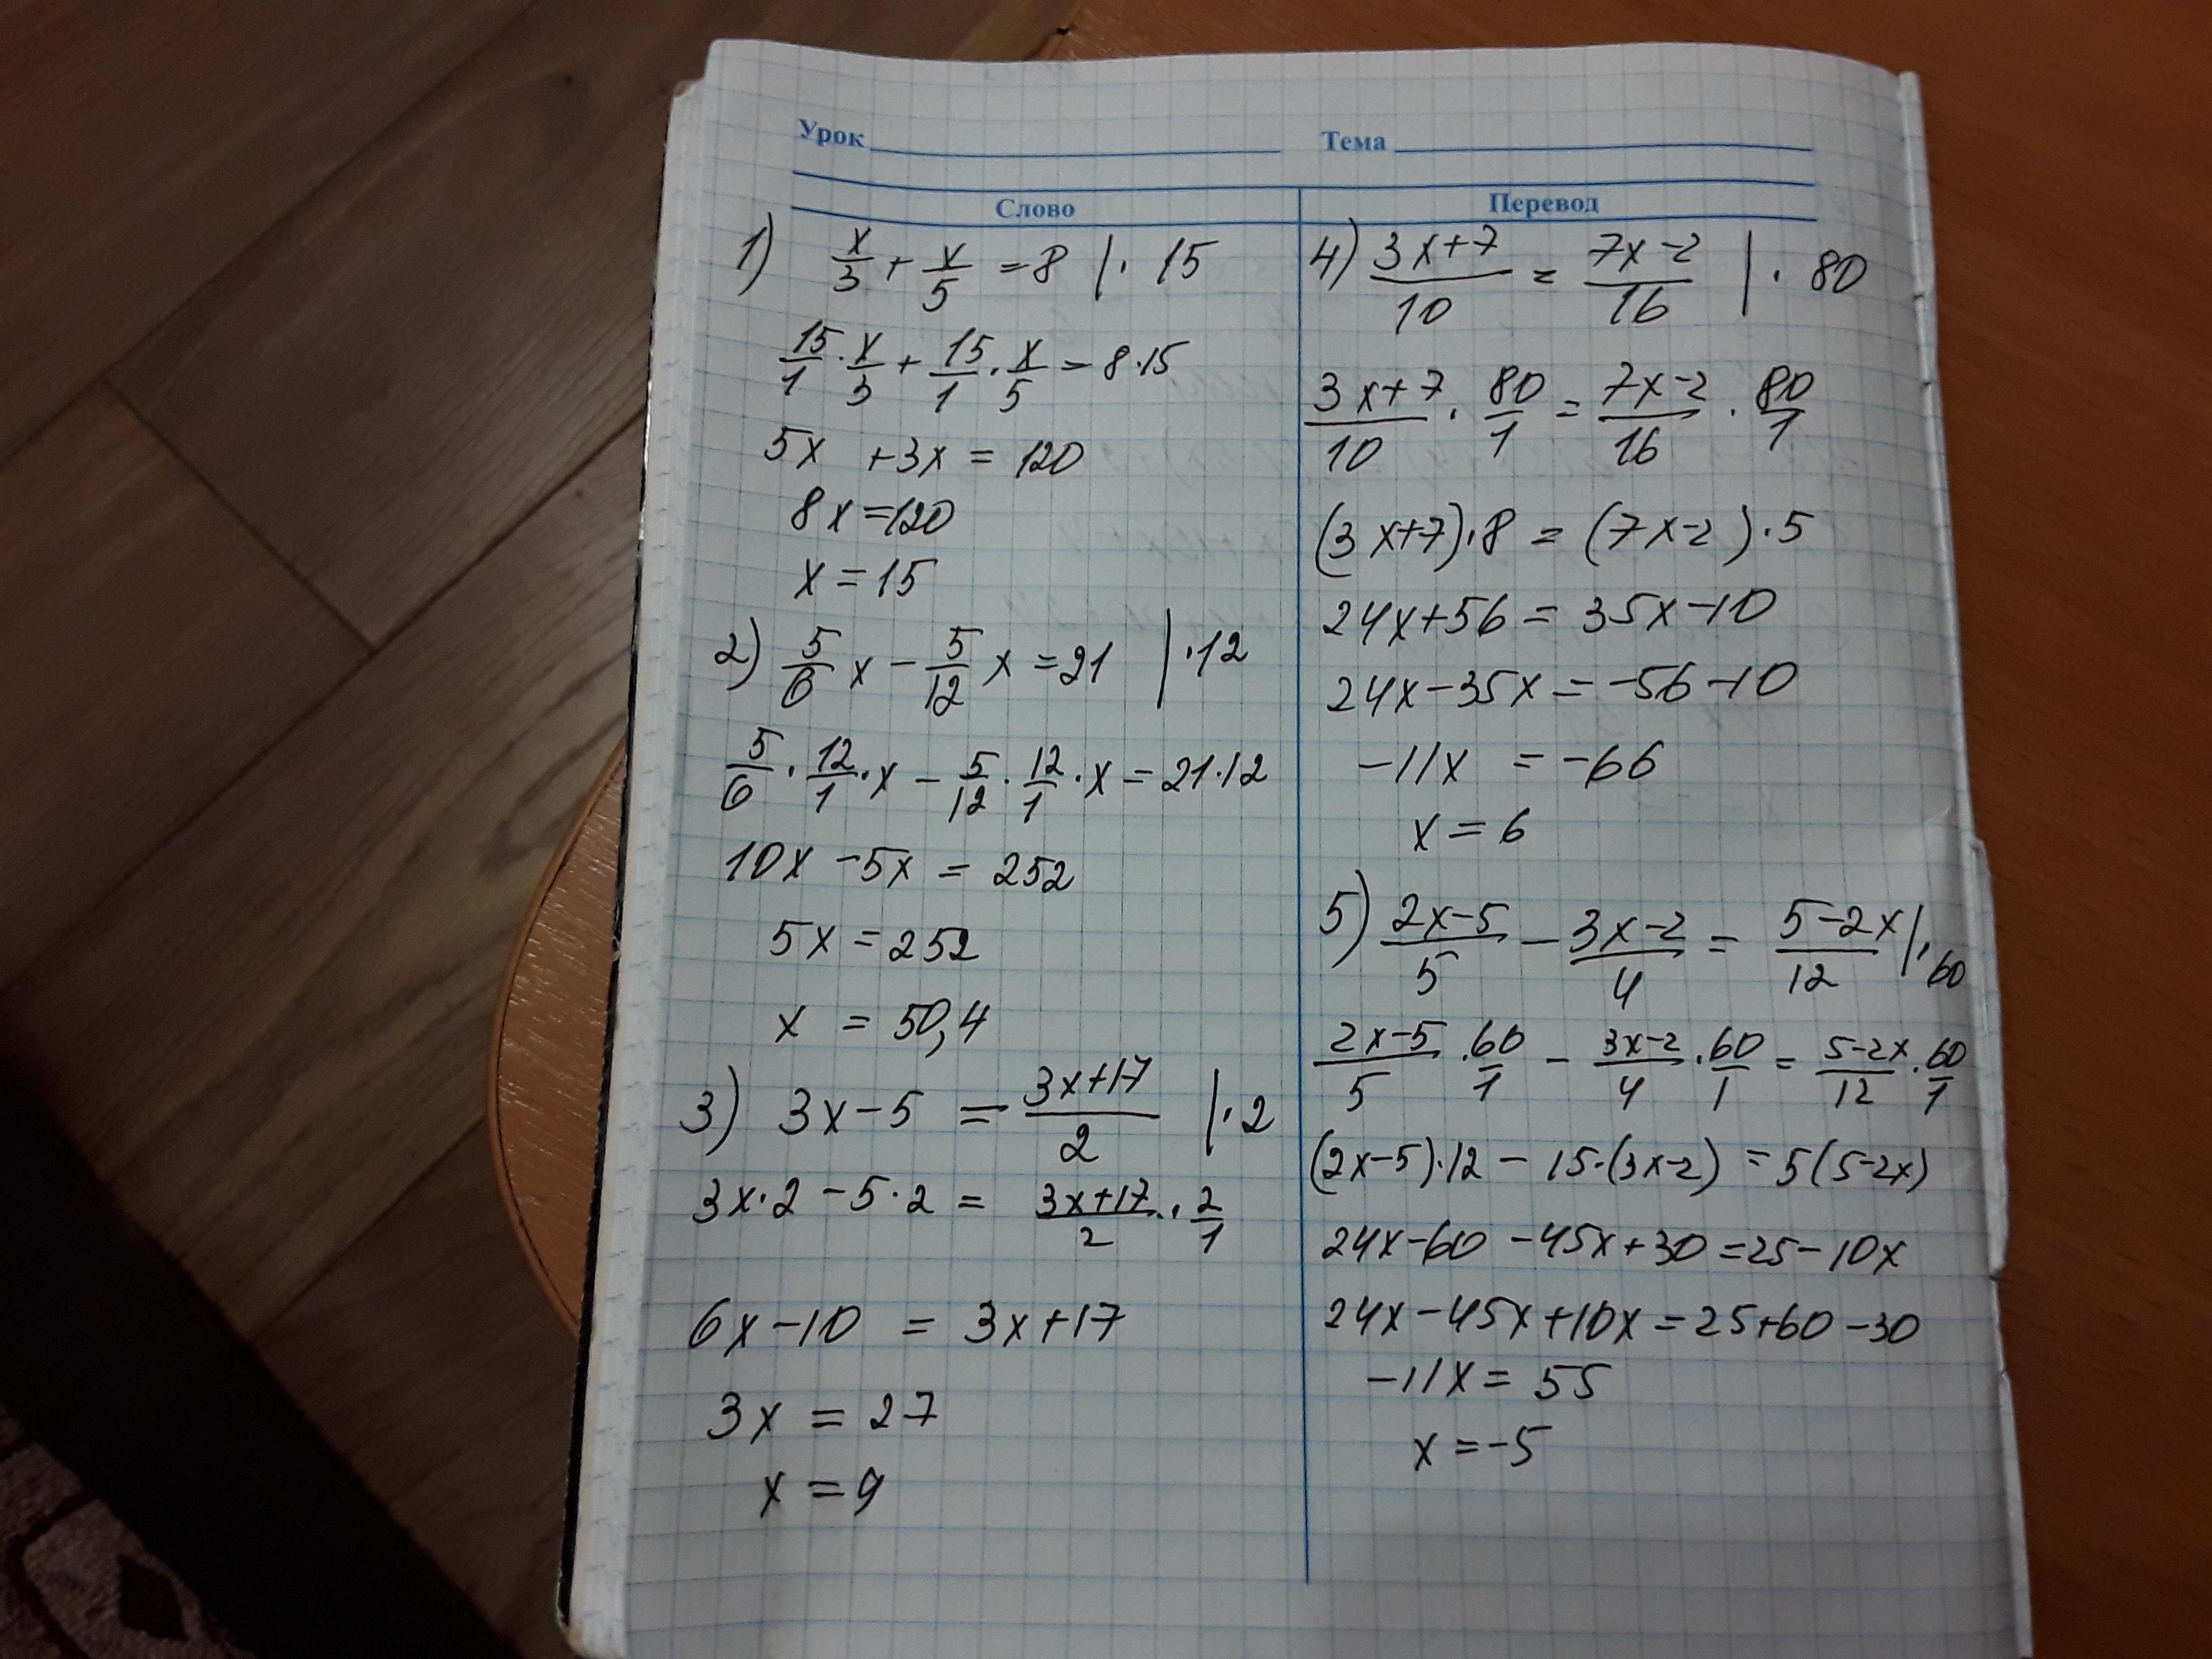 Урок Тема
Слово
1) x/3 + x/5 = 8 | · 15
15/1 · x/3 + 15/1 · x/5 = 8 · 15
5x + 3x = 120
8x = 120
x = 15
2) 5/6 x - 5/12 x = 21 | · 12
5/6 · 12/1 · x - 5/12 · 12/1 · x = 21 · 12
10x - 5x = 252
5x = 252
x = 50,4
3) 3x - 5 = (3x+17)/2 | · 2
3x · 2 - 5 · 2 = (3x+17)/2 · 2/1
6x - 10 = 3x + 17
3x = 27
x = 9
Перевод
4) (3x+7)/10 = (7x-2)/16 | · 80
(3x+7)/10 · 80/1 = (7x-2)/16 · 80/1
(3x+7) · 8 = (7x-2) · 5
24x + 56 = 35x - 10
24x - 35x = -56 - 10
-11x = -66
x = 6
5) (2x-5)/5 - (3x-2)/4 = (5-2x)/12 | · 60
(2x-5)/5 · 60/1 - (3x-2)/4 · 60/1 = (5-2x)/12 · 60/1
(2x-5) · 12 - 15 · (3x-2) = 5(5-2x)
24x - 60 - 45x + 30 = 25 - 10x
24x - 45x + 10x = 25 + 60 - 30
-11x = 55
x = -5